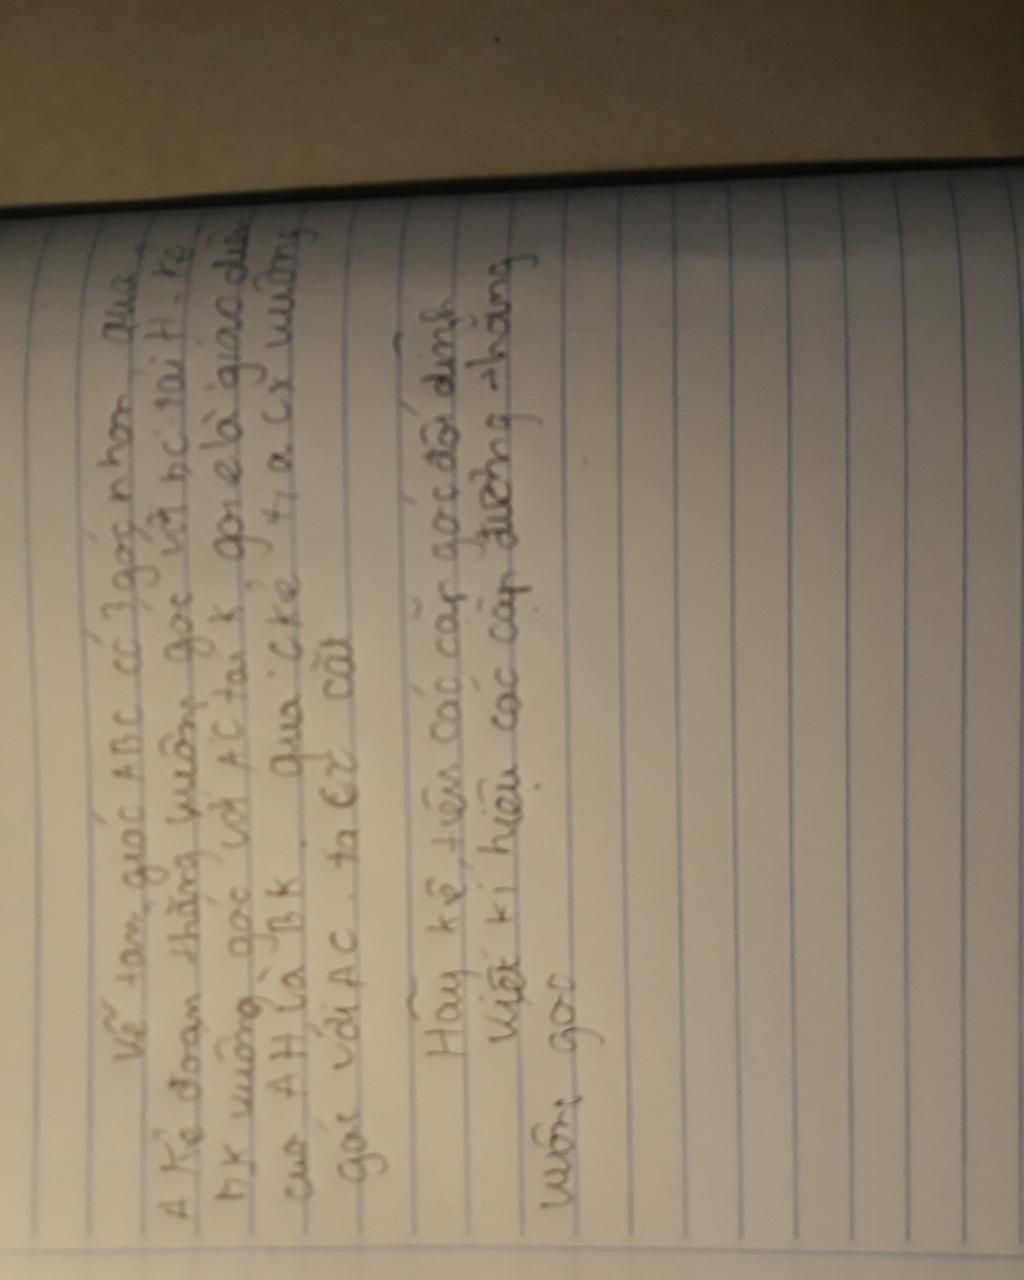 Vẽ tam giác ABC có 3 góc nhọn, qua
A kẻ đoạn thẳng vuông góc với BC tại H. Kẻ
BK vuông góc với AC tại K gọi e là giao điểm
của AH là BK. qua C kẻ tia Cx vuông
góc với AC. ta Cx cắt
Hãy kể tên các cặp góc đối đỉnh
Viết kí hiệu các cặp đường thẳng
vuông góc